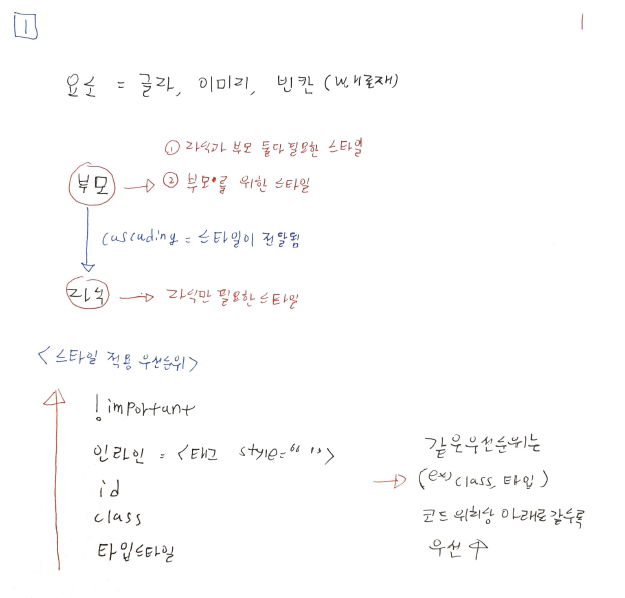 1
1
요소 = 글자, 이미지, 빈칸 (
① 자식과 부모 둘다 필요한 스타일
부모 → ② 부모를 위한 스타일
cascading = 스타일이 전달됨
자식 → 자식만 필요한 스타일
<스타일 적용 우선순위>
!important
인라인 = <태그 style="">
id
class
타입스타일
같은 우선순위는
→ (ex) class, 타입)
코드 위치상 아래로 갈수록
우선 ↑